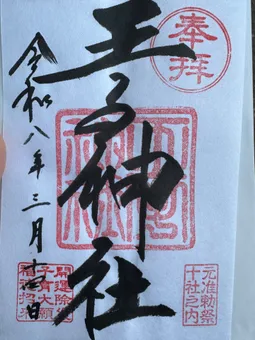 奉拝
王子神社
元准勅祭
十社之内
令和八年三月十四日
開運除
子育大願